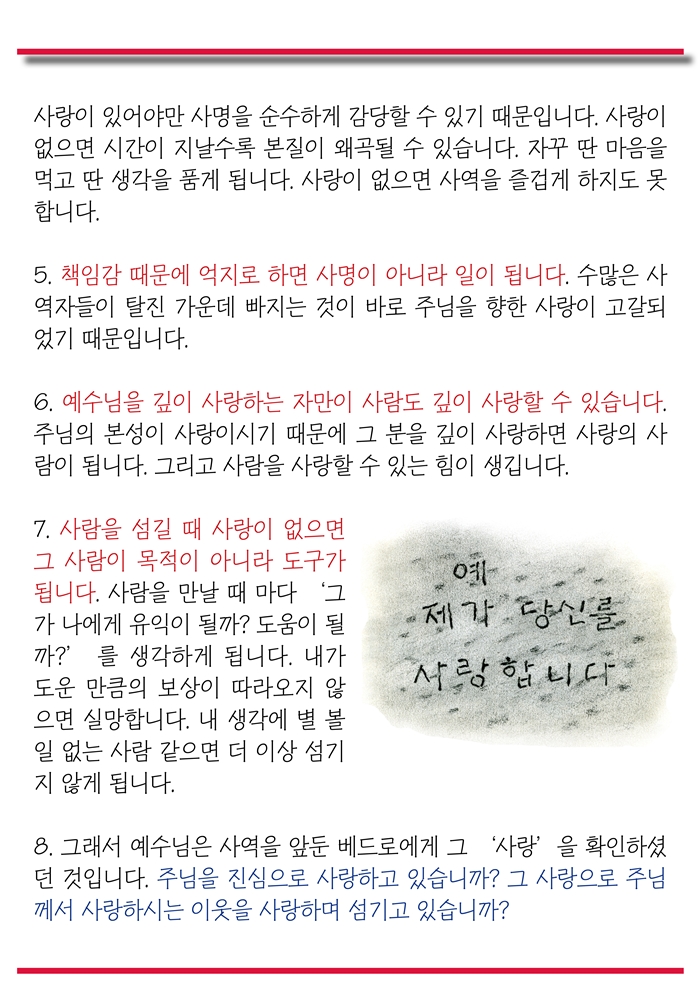 사랑이 있어야만 사명을 순수하게 감당할 수 있기 때문입니다. 사랑이
없으면 시간이 지날수록 본질이 왜곡될 수 있습니다. 자꾸 딴 마음을
먹고 딴 생각을 품게 됩니다. 사랑이 없으면 사역을 즐겁게 하지도 못
합니다.
5. 책임감 때문에 억지로 하면 사명이 아니라 일이 됩니다. 수많은 사
역자들이 탈진 가운데 빠지는 것이 바로 주님을 향한 사랑이 고갈되
었기 때문입니다.
6. 예수님을 깊이 사랑하는 자만이 사람도 깊이 사랑할 수 있습니다.
주님의 본성이 사랑이시기 때문에 그 분을 깊이 사랑하면 사랑의 사
람이 됩니다. 그리고 사람을 사랑할 수 있는 힘이 생깁니다.
7. 사람을 섬길 때 사랑이 없으면
그 사람이 목적이 아니라 도구가
됩니다. 사람을 만날 때 마다 ‘그
가 나에게 유익이 될까? 도움이 될
까?’ 를 생각하게 됩니다. 내가
도운 만큼의 보상이 따라오지 않
으면 실망합니다. 내 생각에 별 볼
일 없는 사람 같으면 더 이상 섬기
지 않게 됩니다.
예
제가 당신를
사랑합니다
8. 그래서 예수님은 사역을 앞둔 베드로에게 그 ‘사랑’ 을 확인하셨
던 것입니다. 주님을 진심으로 사랑하고 있습니까? 그 사랑으로 주님
께서 사랑하시는 이웃을 사랑하며 섬기고 있습니까?